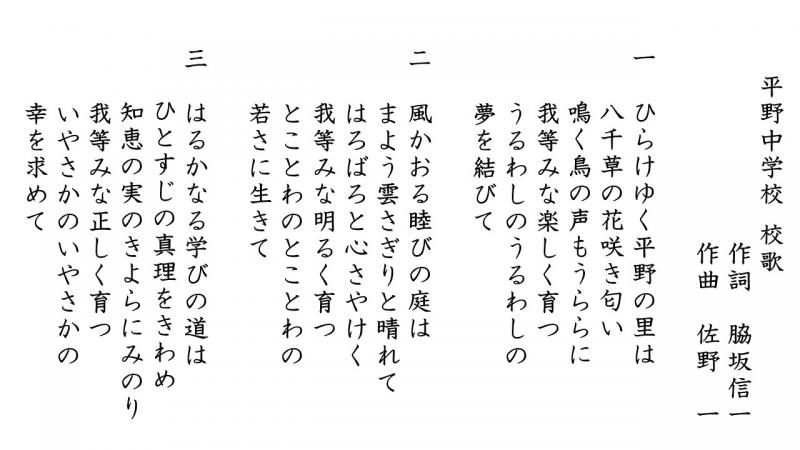 平野中学校 校歌
作詞 脇坂信一
作曲 佐野 一
一
ひらけゆく平野の里は
八千草の花咲き匂い
鳴く鳥の声もうららに
我等みな楽しく育つ
うるわしのうるわしの
夢を結びて
二
風かおる睦びの庭は
まよう雲さぎりと晴れて
はろばろと心さやけく
我等みな明るく育つ
とことわのとことわの
若さに生きて
三
はるかなる学びの道は
ひとすじの真理をきわめ
知恵の実のきよらにみのり
我等みな正しく育つ
いやさかのいやさかの
幸を求めて